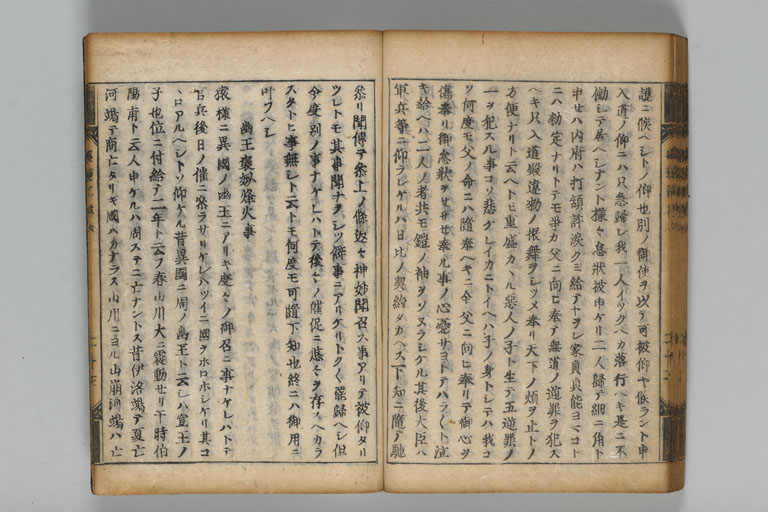 護ニ候ヘシトノ仰也別ノ御使ヲ以テ可被仰ヤ候ラント申
入道ノ仰ニハ只急歸レ我一人イツクヘカ落行ヘキ是ニ不
働シテ居ヘシナント様々ニ怠狀被申ケリ二人歸テ細ニ角ト
申セハ内府ハ打頷許淚クミ給テヤヲレ家貞貞能ヨマコト
ニハ勅定ナリトテモ爭カ父ニ向ヒ奉テ無道ノ逆罪ヲ犯ス
ヘキ只入道殿違物ノ振舞ヲシツメ奉リ天下ノ煩ヲ止トノ
方便ナリト云ヘトモ重盛カヽル惡人ノ子ト生テ五逆罪ノ
一ヲ犯スル事コソ悲ケレイカニトイヘハ子ノ身トシテハ我コ
ソ何度モ父ノ命ニハ隨奉ヘキニ今父ニ向ヒ奉リテ御心ヲ
傷奉リ御怠狀ヲセサセ奉ル事ノ心憂サヨトテハラ〱ト泣
キ給ヘハ二人ノ者共モ鎧ノ袖ヲソヌラシケル其後大臣ハ
軍兵等ニ仰ラレケルハ日比ノ契約タカヘス下知ニ隨テ馳
參リ聞傳テ參上ノ條返々神妙聞召ス事アリテ被仰タリ
ツレトモ其事聞ナヲシツ僻事ニアリケリトク〱罷歸ヘシ但
今度別ノ事ナケレハトテ後々ノ催促ニ遲々ヲ存スヘカラ
スタトヒ事無シト云トモ何度モ可隨下知也終ニハ御用ニ
叶フヘシ
幽王褒姒烽火事
猿樣ニ異國ノ幽王ニアリキ度々ノ御召ニ事ナケレハトテ
官兵後日ノ催ニ參ラサリケレハツイニ國ヲホロホシケリ其コ
ヽロアルヘシトソ仰ケル昔異國ニ周ノ幽王ト云シハ宣王ノ
子也位ニ付給テ二年ト云フ春山川大ニ震動セリ于時伯
陽甫ト云人申ケルハ周ステニ亡ナントス昔伊洛竭テ夏亡
河竭テ商亡タリキ國ハカナラス山川ニヨル山崩河竭ハ亡